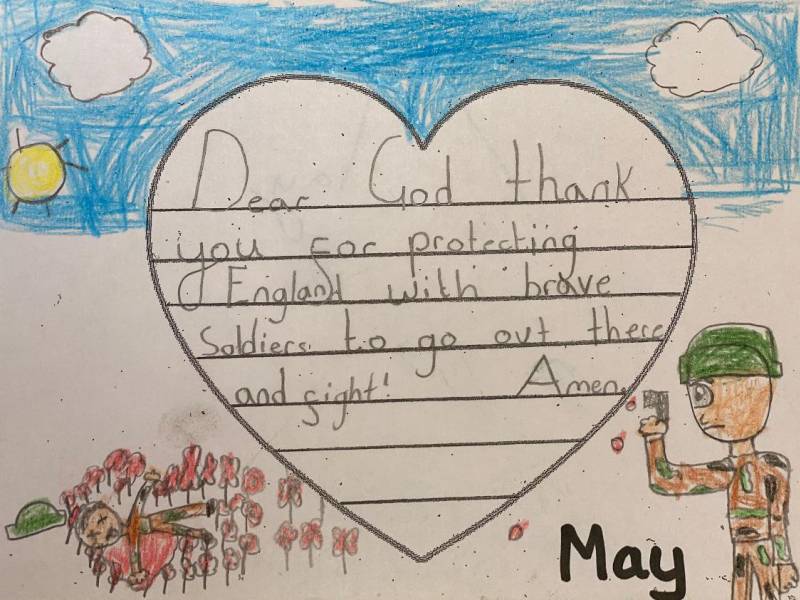 Dear God thank
you for protecting
England with brave
Soldiers to go out there
and fight! Amen.
May